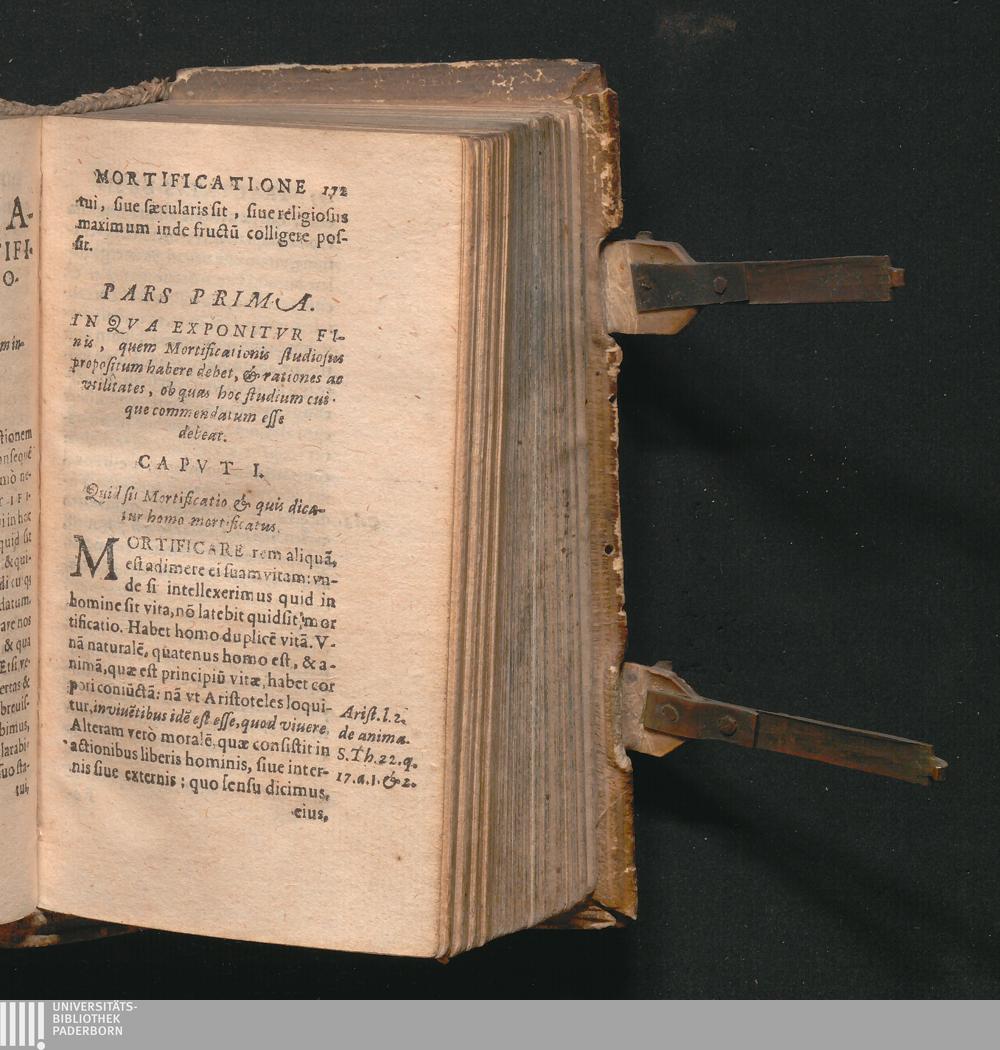 A-
TIFI-
O.
m in-
ctionem
onsequē
mò ne-
T-IFI-
i in hoc
quid sit
& qui-
datum,
are nos
& qua
Etsi, ve-
ertas &
breuis-
bimus,
larabi-
suo sta-
tui,
MORTIFICATIONE 172
tui, siue sæcularis sit, siue religiosus
maximum inde fructū colligere pos-
sit.
PARS PRIMA.
IN QVA EXPONITVR FI-
nis, quem Mortificationis studiosus
propositum habere debet, & rationes ac
vtilitates, ob quas hoc studium cui-
que commendatum esse
debeat.
CAPVT I.
Quid sit Mortificatio & quis dica-
tur homo mortificatus.
MORTIFICARE rem aliquā,
est adimere ei suam vitam: vn-
de si intellexerimus quid in
homine sit vita, nō latebit quid sit mor
tificatio. Habet homo duplicē vitā. V-
nā naturalē, quatenus homo est, & a-
nimā, quæ est principiū vitæ, habet cor
pori coniūctā: nā vt Aristoteles loqui-
tur, in viuētibus idē est esse, quod viuere,
Alteram verò moralē, quæ consistit in
actionibus liberis hominis, siue inter-
nis siue externis; quo sensu dicimus,
eius,
Arist. l. 2.
de anima.
S. Th. 22. q.
17. a. 1. & 2.
UNIVERSITÄTS-
BIBLIOTHEK
PADERBORN